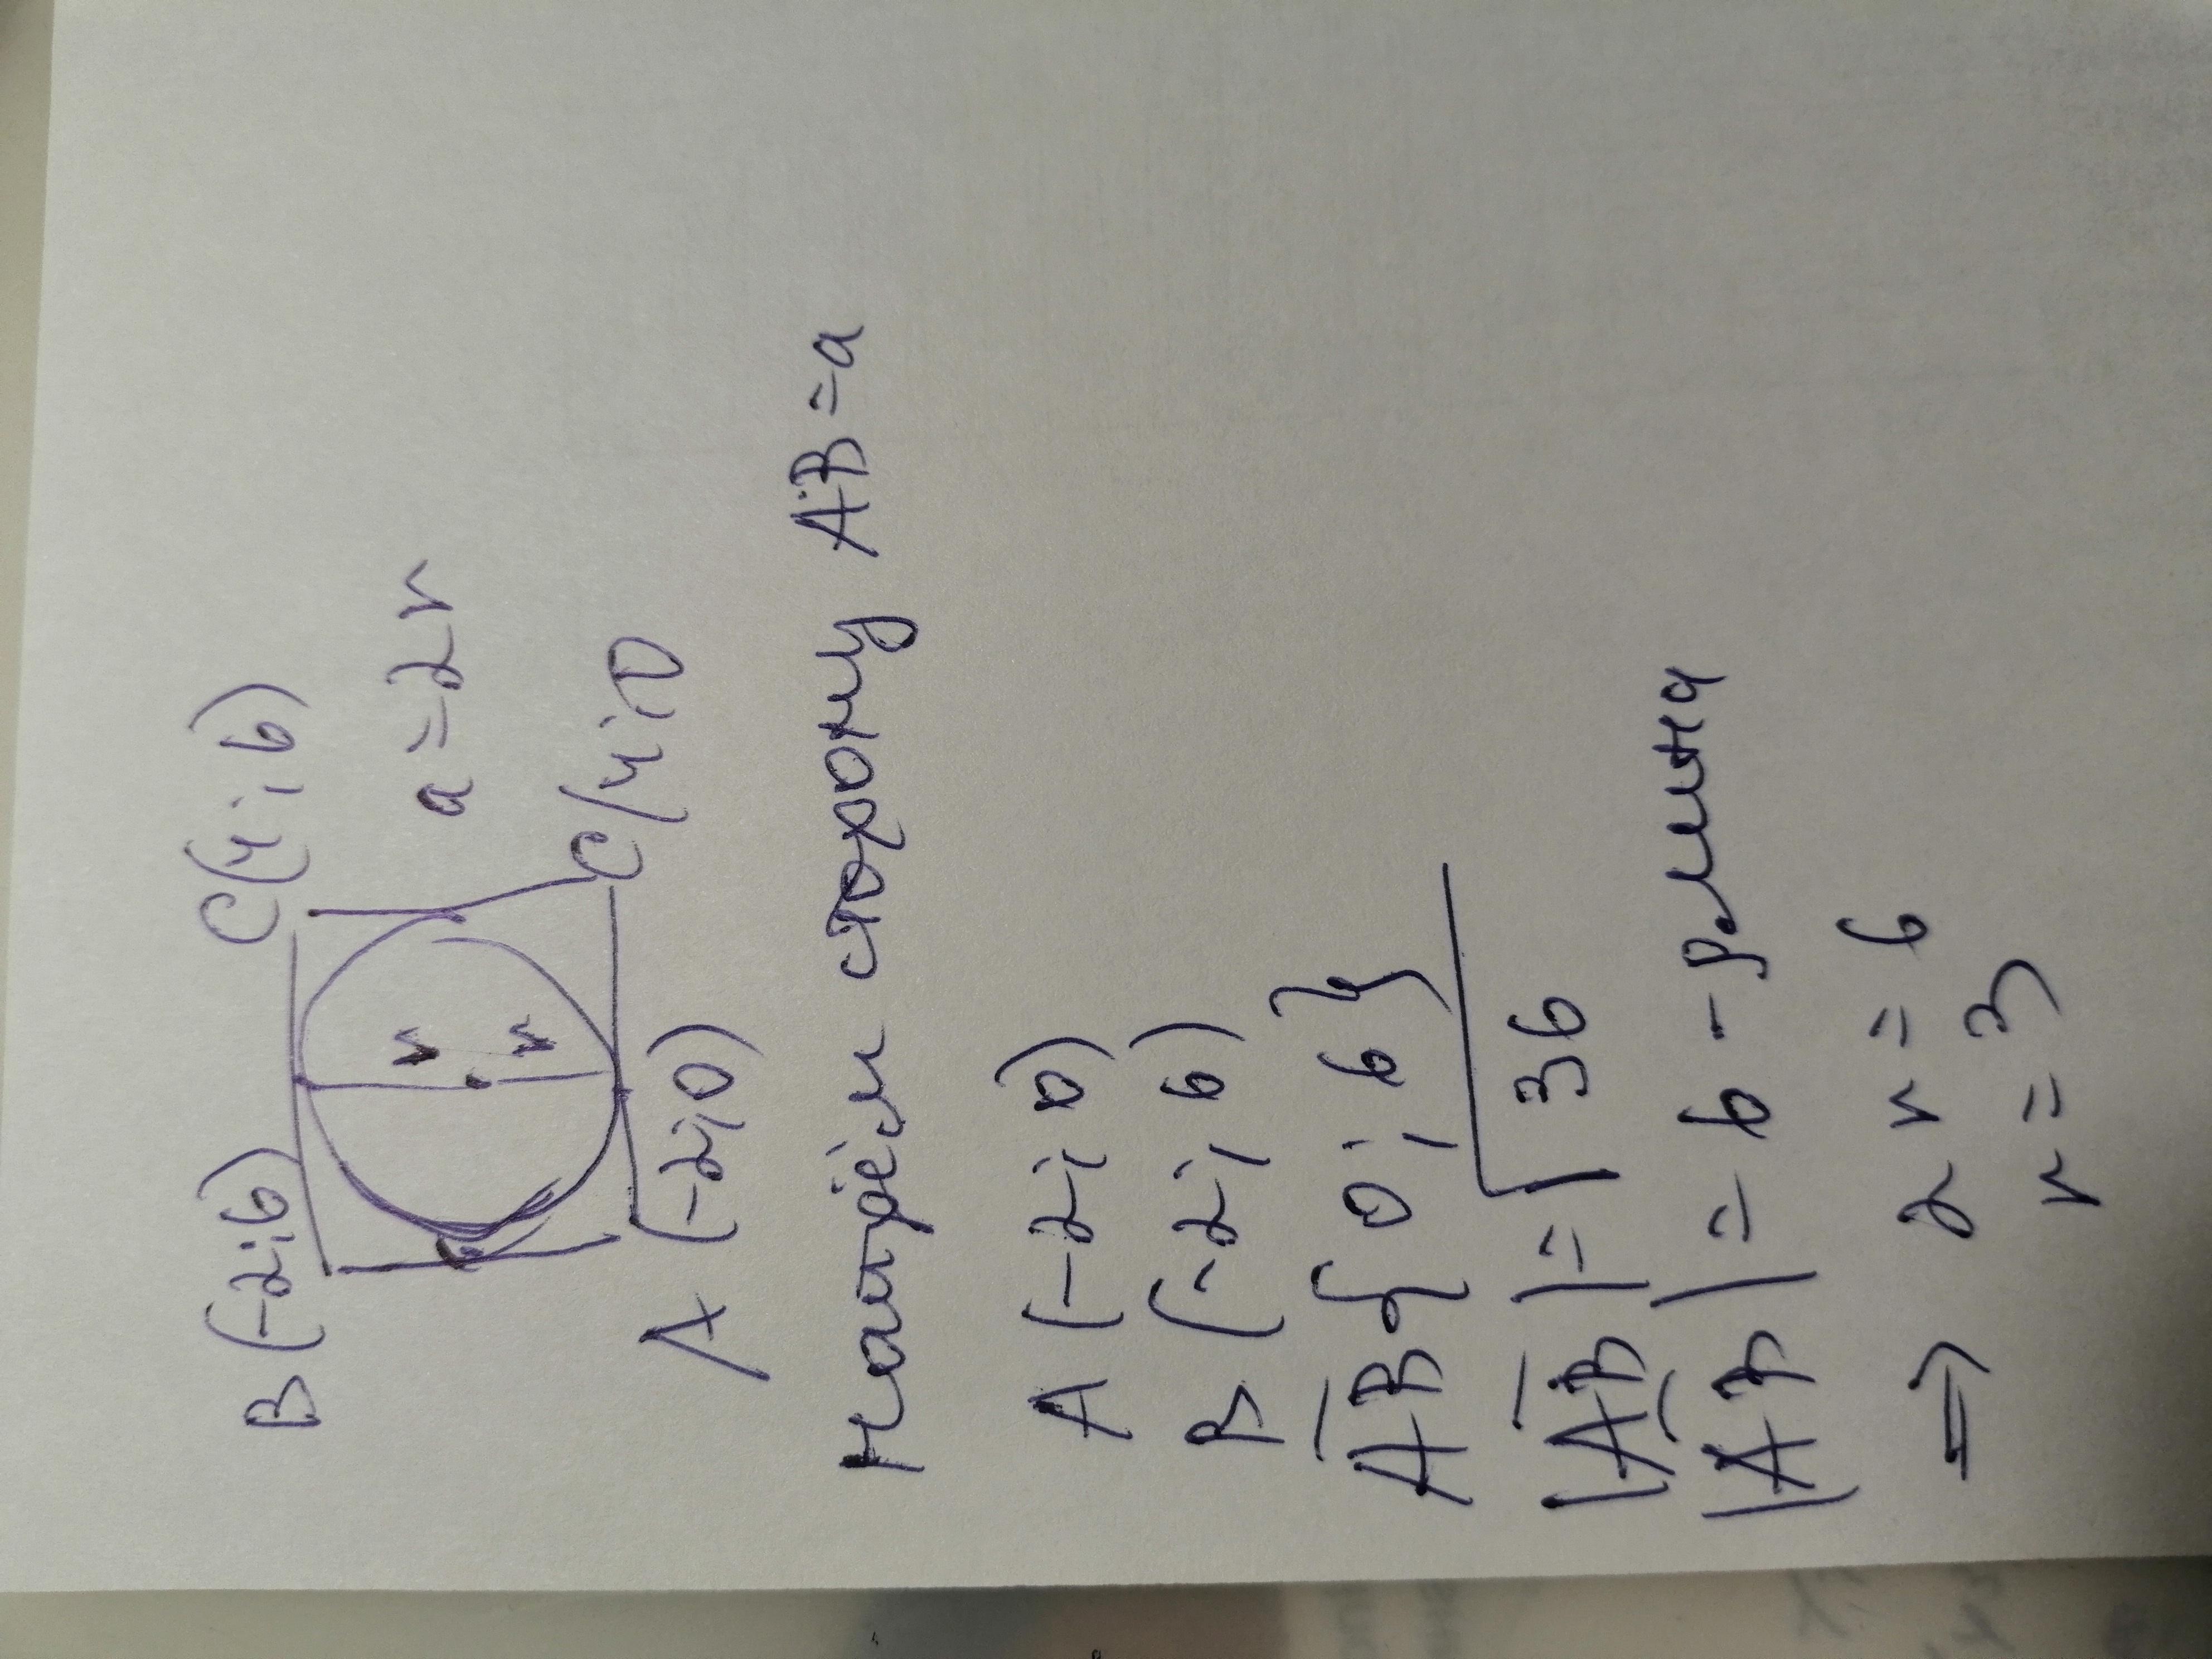 B(-2;6) C(4;6)
r
a=2r
r
A(-2;0) C(4;0
Найдём сторону AB=a
A(-2;0)
B(-2;6)
AB{0;6}
|AB|=√36
|AB|=6 -
⇒ 2r=6
r=3